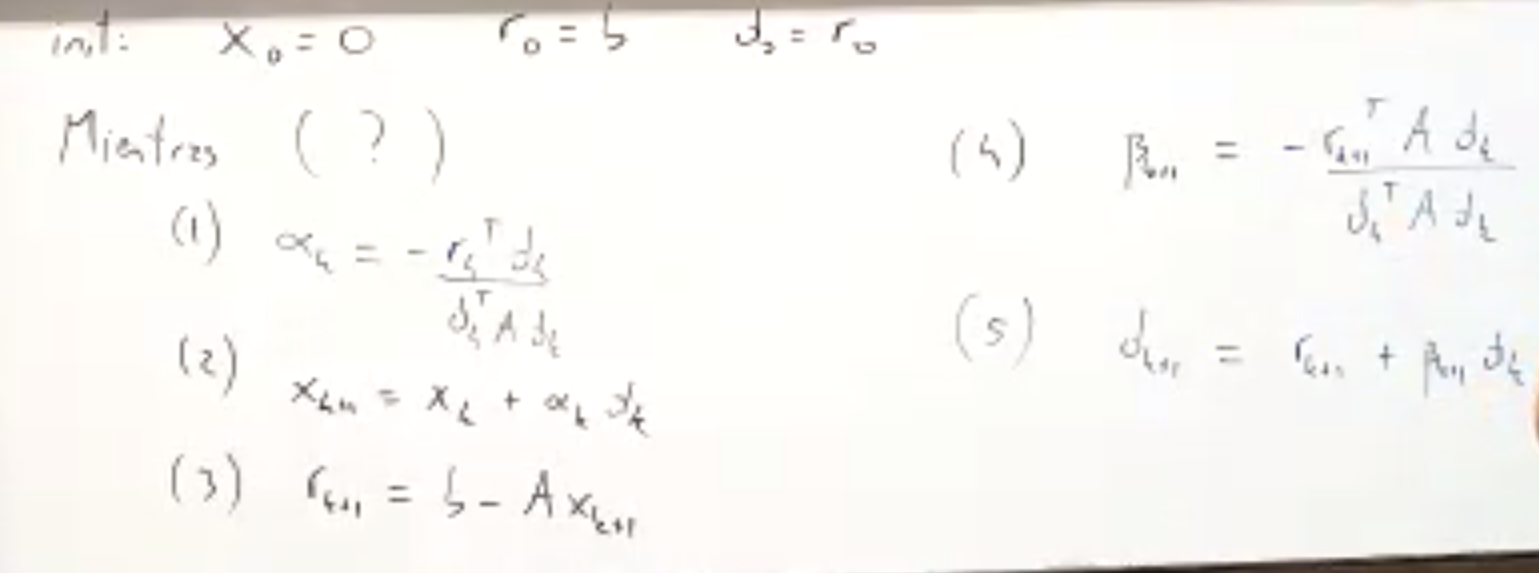 init: x₀ = 0 r₀ = b d₀ = r₀
Mientras ( ? )
(1) αₖ = - rₖᵀ dₖ / dₖᵀ A dₖ
(2) xₖ₊₁ = xₖ + αₖ dₖ
(3) rₖ₊₁ = b - A xₖ₊₁
(4) βₖ₊₁ = - rₖ₊₁ᵀ A dₖ / dₖᵀ A dₖ
(5) dₖ₊₁ = rₖ₊₁ + βₖ₊₁ dₖ